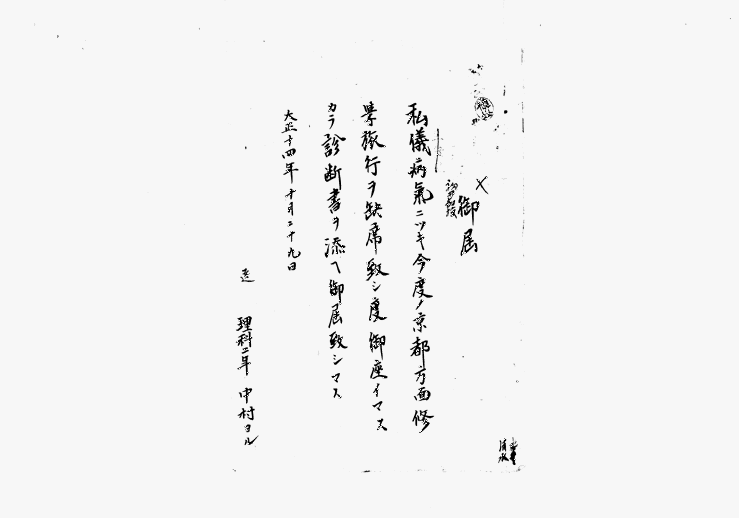 御届
私儀病氣ニツキ今度ノ京都方面修
學旅行ヲ缺席致シ度御座イマス
カラ診断書ヲ添ヘ御届致シマス
大正十四年十月二十九日
理科二年 中村ヨル